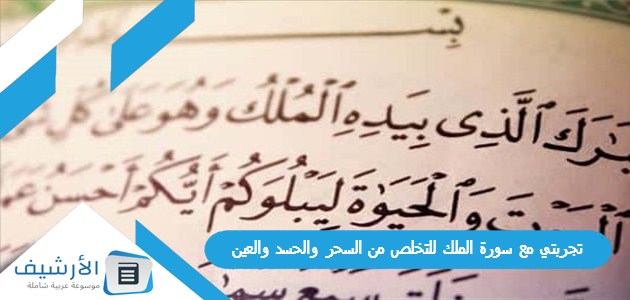 بِسْـ
ـبَٰرَكَ ٱلَّذِى بِيَدِهِ ٱلْمُلْكُ وَهُوَ عَلَىٰ كُلِّ
ٱلْمَوْتَ وَٱلْحَيَوٰةَ لِيَبْلُوَكُمْ أَيُّكُمْ أَحْسَنُ
تجربتي مع سورة الملك للتخلص من السحر والحسد والعين
الأرشيف
موسوعة عربية شاملة